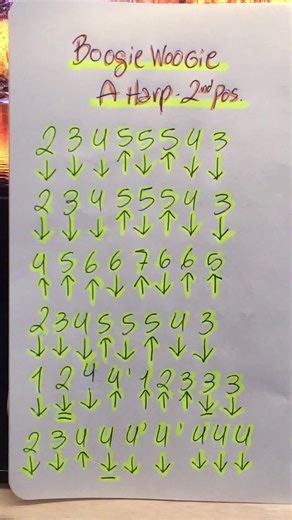 Boogie Woogie
A Harp - 2nd Pos.
2 3 4 5 5 5 4 3
↓ ↓ ↓ ↑ ↓ ↑ ↓ ↓
2 3 4 5 5 5 4 3
↓ ↓ ↓ ↑ ↓ ↑ ↓ ↓
4 5 6 6 7 6 6 5
↑ ↑ ↑ ↓ ↑ ↓ ↑ ↑
2 3 4 5 5 5 4 3
↓ ↓ ↓ ↑ ↓ ↑ ↓ ↓
1 2 4 4' 1 2 3 3 3
↓ ↓ ↓ ↓ ↑ ↑ ↑ ↓ ↓
2 3 4 4 4' 4' 4 4 4
↓ ↓ ↑ ↓ ↓ ↓ ↓ ↓ ↓